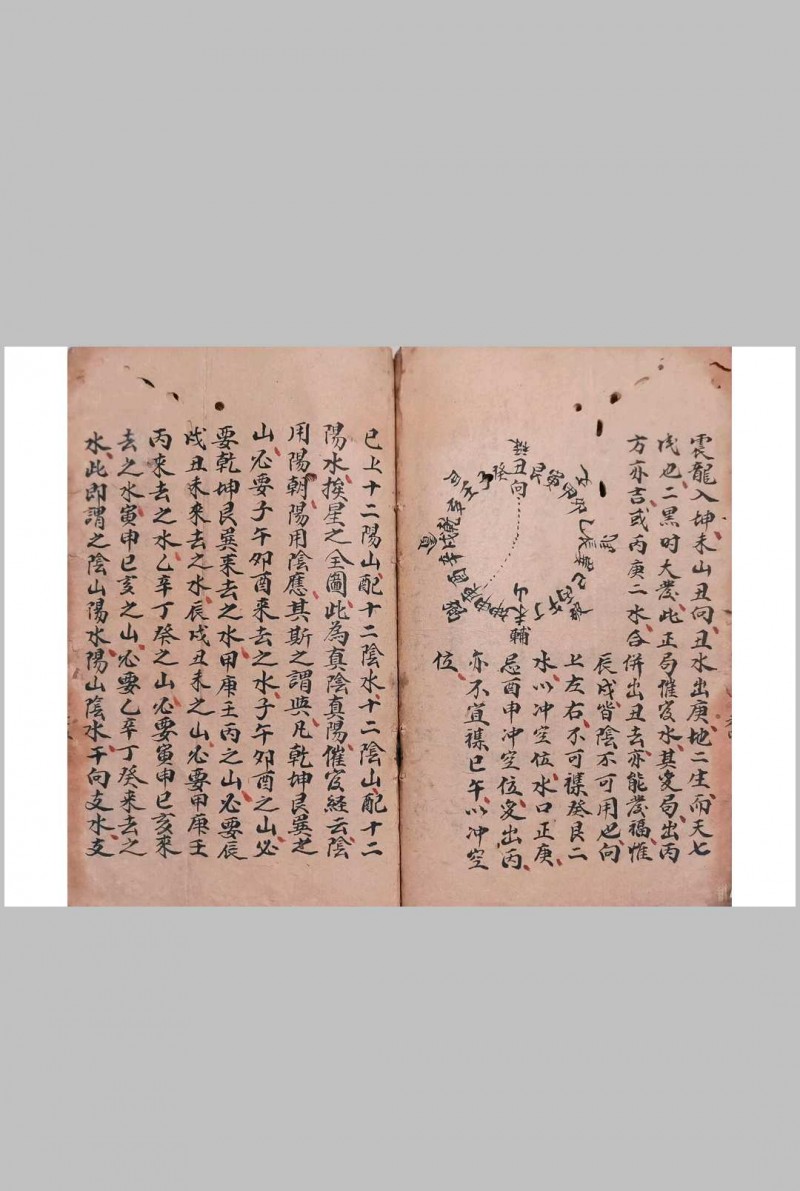 震龍入坤未山丑向丑水出庚地二生而天七
成也二黑时大發此正局催官水其变局出丙
方亦吉或丙庚二水合併出丑去亦能發福惟
辰戌皆陰不可用也向
上左右不可襍癸艮二
水以冲空位水口正庚
忌酉申冲空位变出丙
亦不宜襍巳午以冲空
位
丑向
癸
艮
寅
甲
卯
乙
辰
巽
巳
丙
午
丁
未山
輔
坤
申
庚
酉
辛
戌
乾
亥
壬
子
已上十二陽山配十二陰水十二陰山配十二
陽水挨星之全圖此為真陰真陽催官經云陰
用陽朝陽用陰應其斯之謂與凡乾坤艮巽之
山必要子午卯酉来去之水子午卯酉之山必
要乾坤艮巽来去之水甲庚壬丙之山必要辰
戌丑未来去之水辰戌丑未之山必要甲庚壬
丙來去之水乙辛丁癸之山必要寅申巳亥來
去之水寅申巳亥之山必要乙辛丁癸來去之
水此即謂之陰山陽水陽山陰水干向支水支